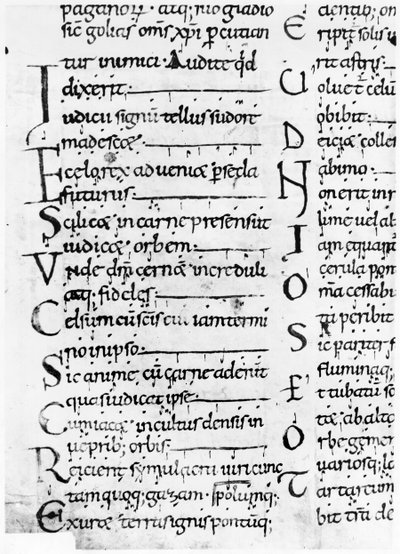 paganoꝝ. atq; nio gladio
sic golias oms xpi percutian
tur inimici. Audite qd
dixerit.
Iudicii signū tellus sudore
madescet.
E celo rex adveniet p secla
futurus.
Scilicet in carne presens ut
iudicet orbem.
Unde dm cernent increduli
atq; fideles.
Celsum cū scis iam termi
no in ipso.
Sic anime cū carne aderit
quas iudicat ipse.
Cumiacet incultus densis in
veprib; orbis.
Reicient symulacra viri cunc
tam quoq; gazam.
Exuret terras ignis pontūq;
cientib; om
Eript solis
rit astris.
Volvet celū
obibit.
Deiciet colle
ab imo.
Non erit in r
lime vel al
Iam equant
cerula pon
Oma cessabi
peribit
Sic pariter f
fluminaq;
Et tubatū so
ab alto
Orbe gemen
variosq; la
Tartareum
bit tra de